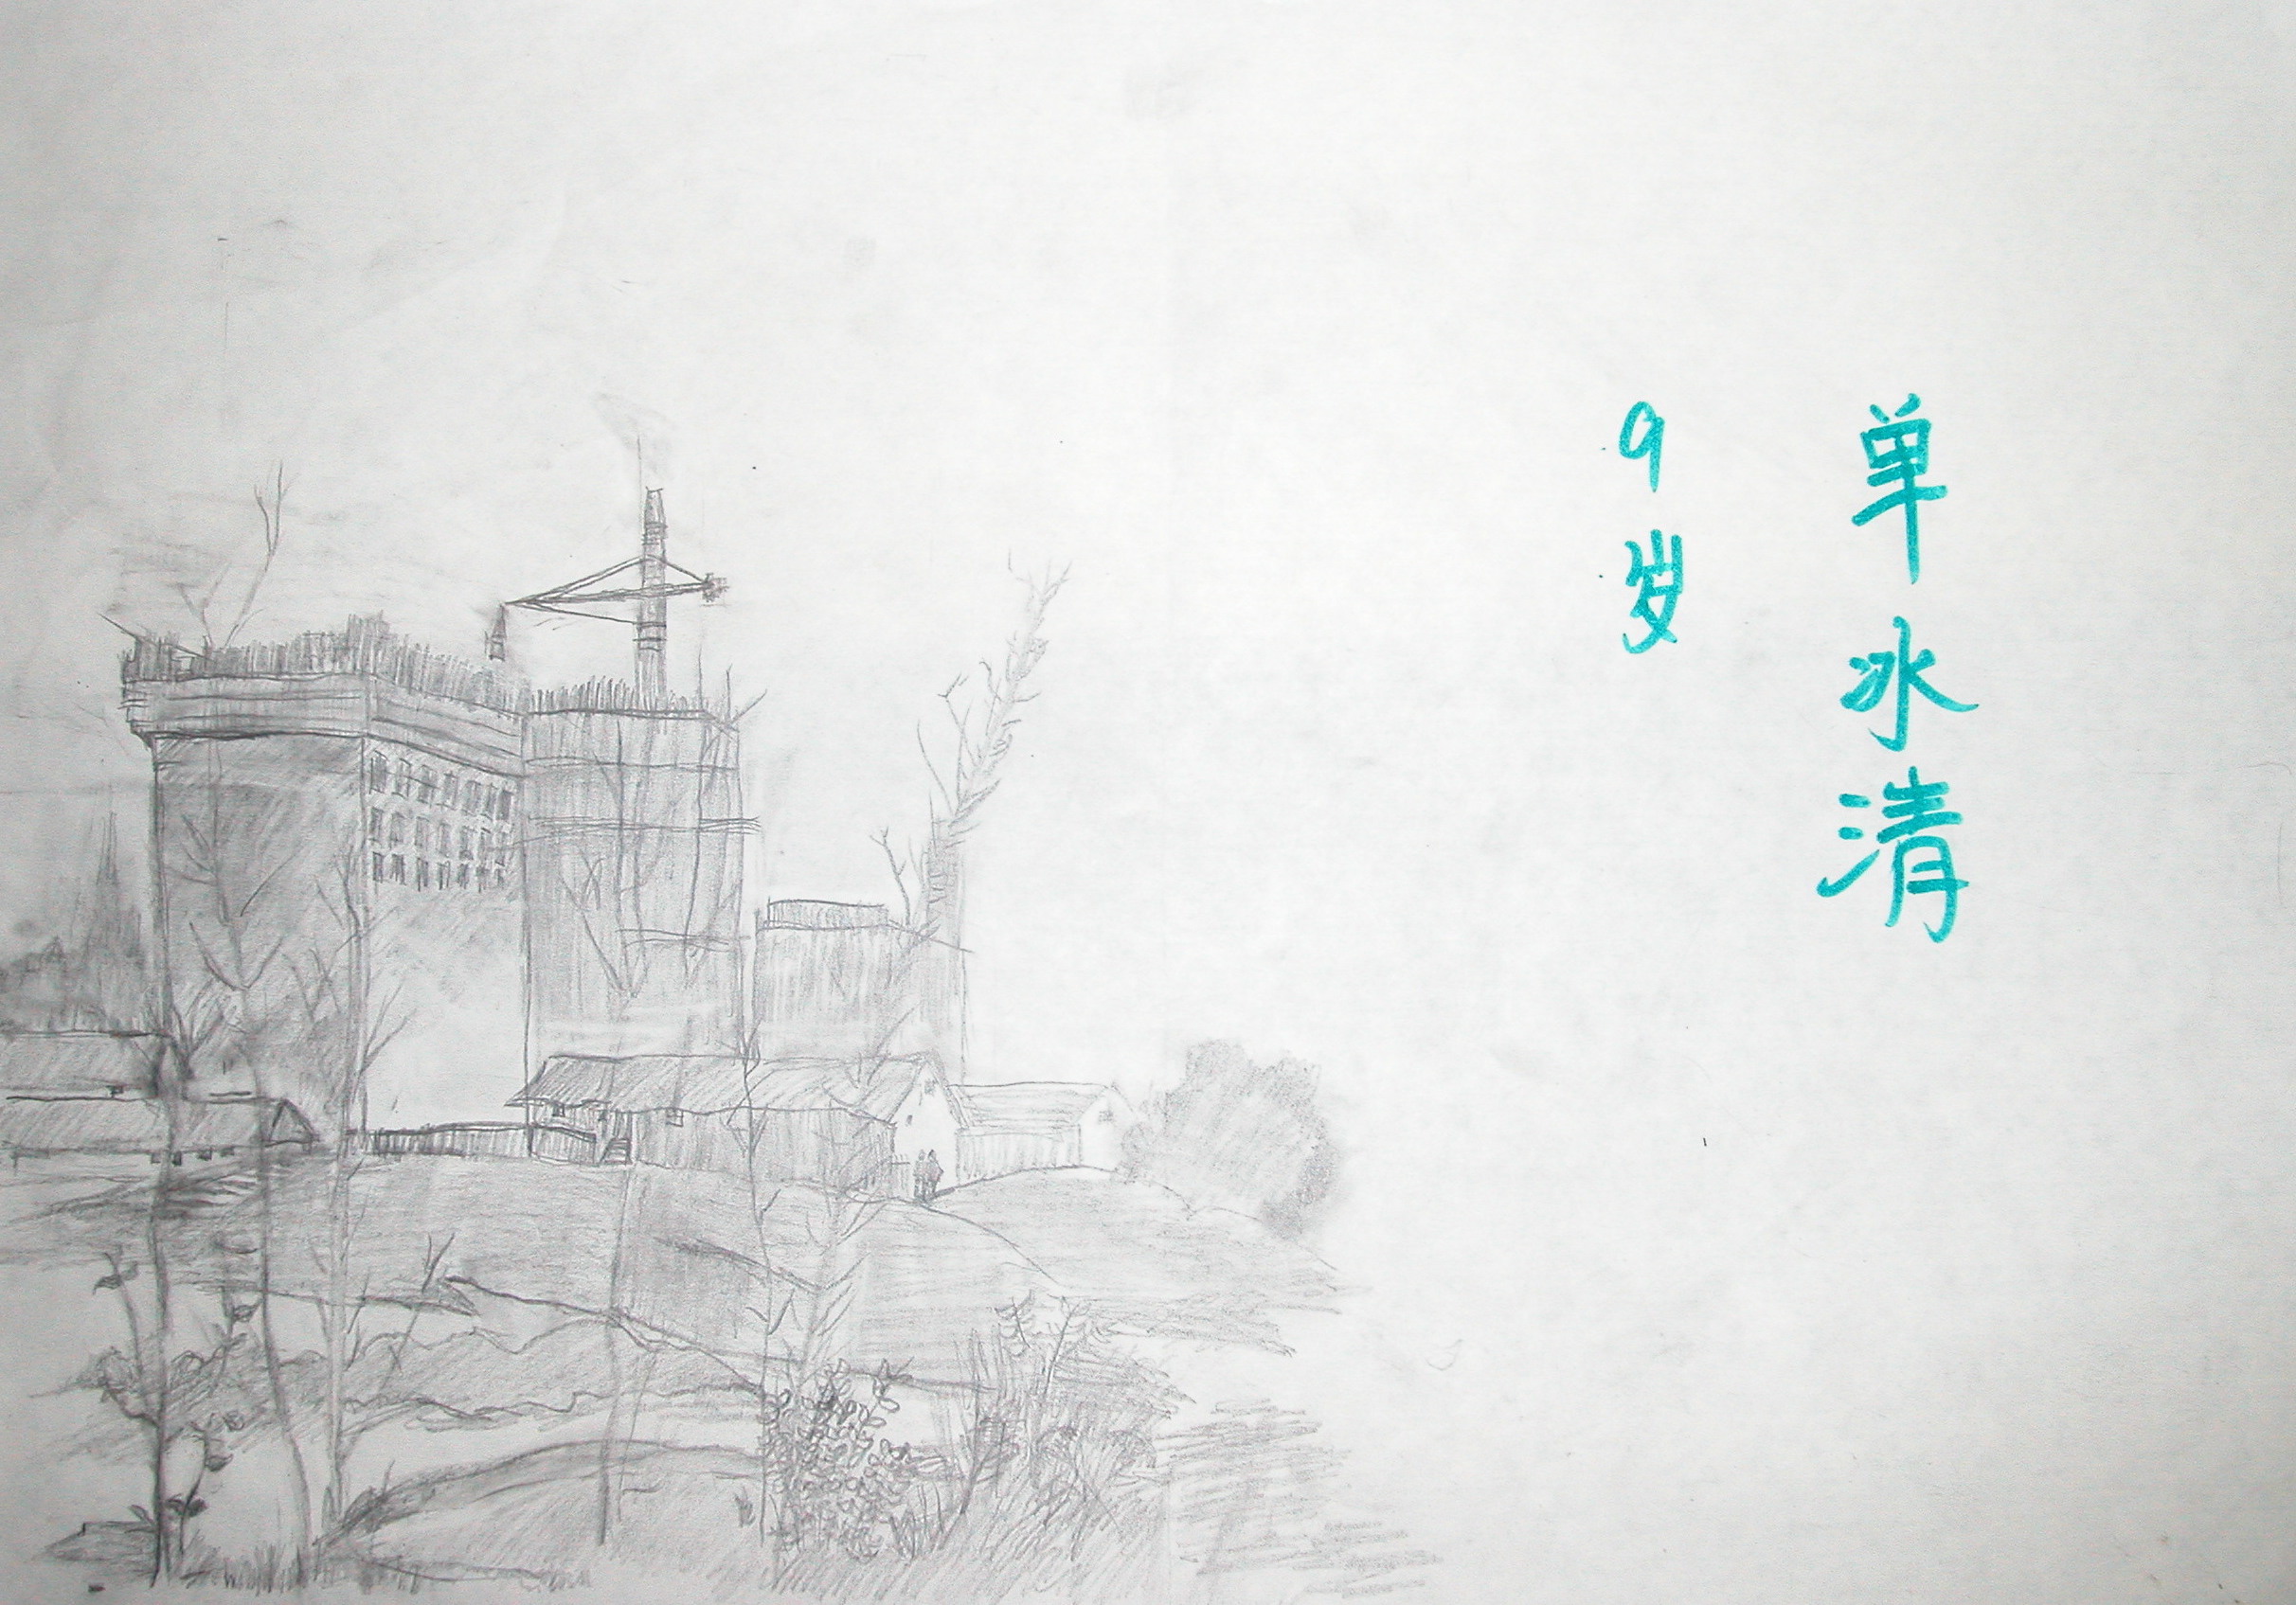 单冰清
9岁